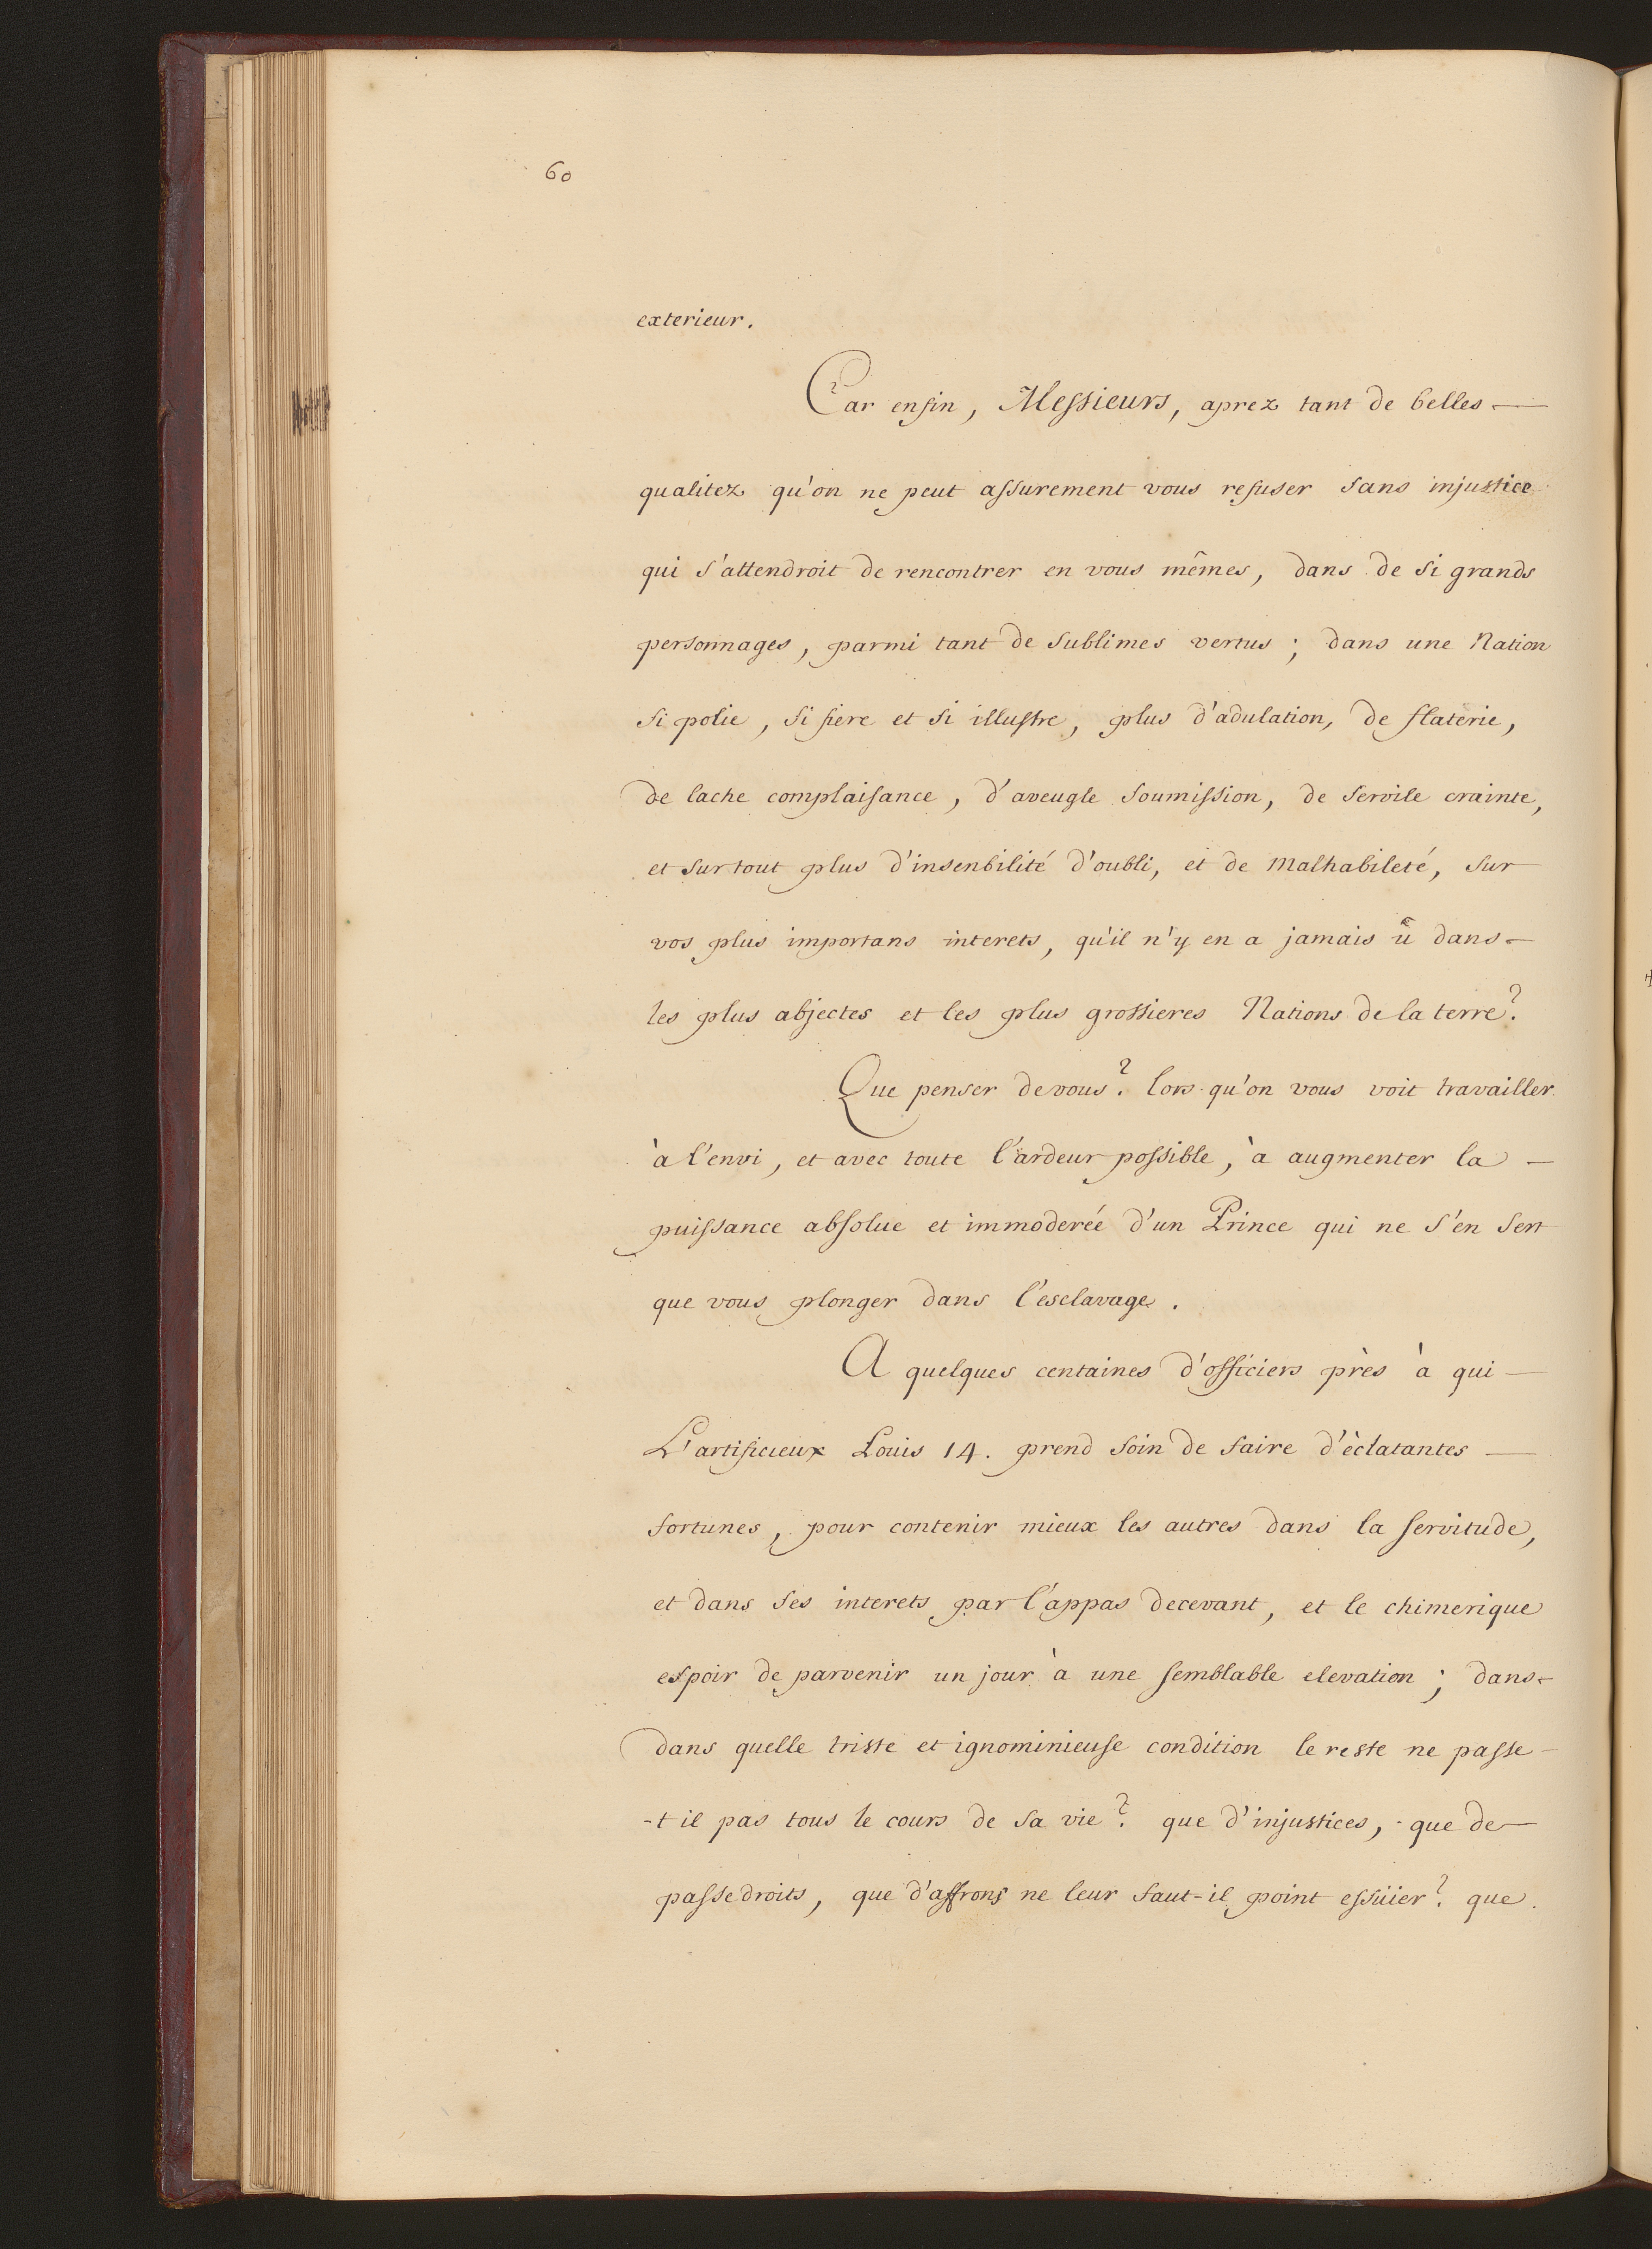 60
exterieur.
Car enfin, Messieurs, aprez tant de belles —
qualitez qu'on ne peut assurement vous refuser sans injustice
qui s'attendroit de rencontrer en vous mêmes, dans de si grands
personnages, parmi tant de sublimes vertus ; dans une Nation
si polie, si fiere et si illustre, plus d'adulation, de flaterie,
de lache complaisance, d'aveugle soumission, de servile crainte,
et sur tout plus d'insenbilité d'oubli, et de malhabileté, sur
vos plus importans interets, qu'il n'y en a jamais û dans -
les plus abjectes et les plus grossieres Nations de la terre ?
Que penser de vous ? lors qu'on vous voit travailler
à l'envi, et avec toute l'ardeur possible, à augmenter la —
puissance absolue et immoderée d'un Prince qui ne s'en sert
que vous plonger dans l'esclavage.
A quelques centaines d'officiers près à qui —
L'artificieux Louis 14. prend soin de faire d'èclatantes —
fortunes, pour contenir mieux les autres dans la servitude,
et dans ses interets par l'appas decevant, et le chimerique
espoir de parvenir un jour à une semblable elevation ; dans -
dans quelle triste et ignominieuse condition le reste ne passe -
-t il pas tous le cours de sa vie ? que d'injustices, que de —
passedroits, que d'affrons ne leur faut-il point essüier ? que